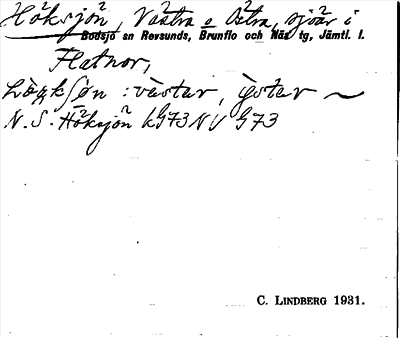 Höksjön, Västra o Östra, sjöar i
Bodsjö sn Revsunds, Brunflo och Näs tg, Jämtl. l.
Flatnor,
: västar, östar ~
N. S. Höksjön kG73NV G73
C. LINDBERG 1931.